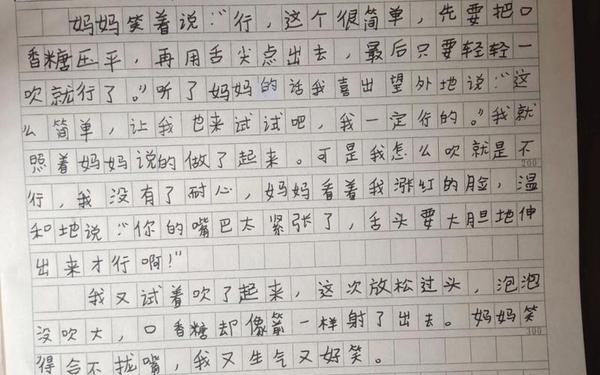 妈妈笑着说:“行,这个很简单,先要把口
香糖压平,再用舌尖点出去,最后只要轻轻一
吹就行了。”听了妈妈的话我喜出望外地说:“这
么简单,让我也来试试吧,我一定行的。”我就
照着妈妈说的做了起来。可是我怎么吹就是不
200
行,我没有了耐心,妈妈看着我涨红的脸,温
和地说:“你的嘴巴太紧张了,舌头要大胆地伸
出来才行啊!”
我又试着吹了起来,这次放松过头,泡泡
没吹大,口香糖却像箭一样射了出去。妈妈笑
300
得合不拢嘴,我又生气又好笑。